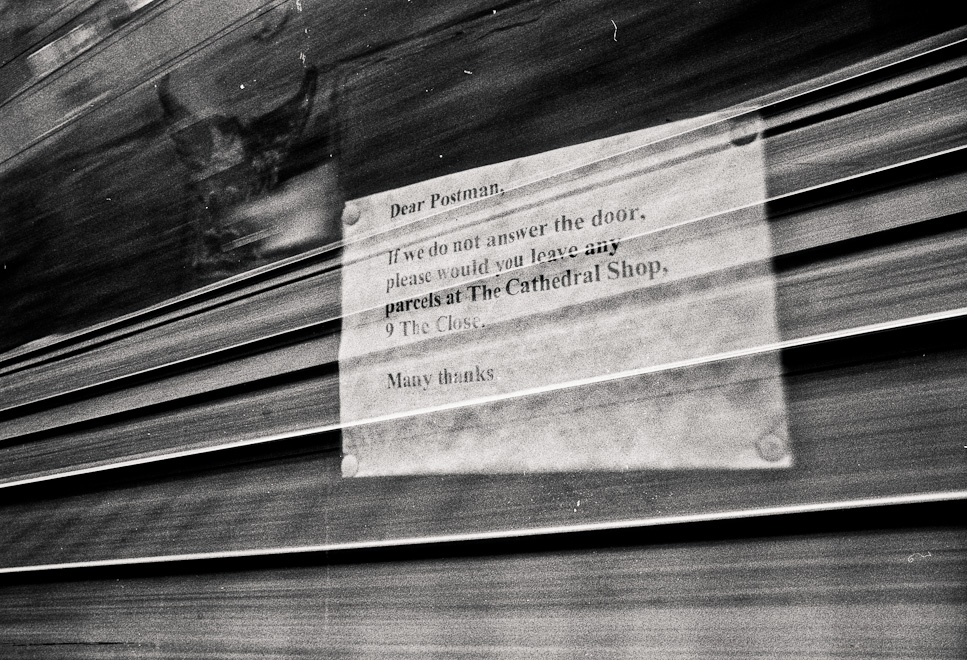 Dear Postman,
If we do not answer the door,
please would you leave any
parcels at The Cathedral Shop,
9 The Close.
Many thanks